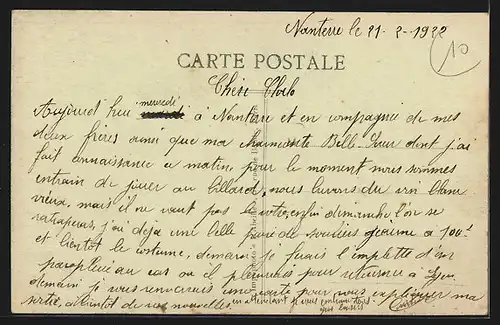 Nanterre le 21-2-1922
10
CARTE POSTALE
Chère Clolo
mercredi
Aujourd hui à Nanterre et en compagnie de mes
deux frères ainsi que ma charmante Bell-Sœur dont j'ai
fait connaissance ce matin, pour le moment nous sommes
entrain de jouer au billard, nous buvons du vin blanc
vieux, mais il ne vaut pas le votre, enfin dimanche l'on se
ratrapera, j'ai deja une belle paire de souliers jeaune à 100f
et bientot le costume, demain je ferais l'implette d'un
parapluie au cas ou il pleuvrais pour retourner à Lyon
demain je vous renverrais une carte pour vous expliquer ma
sortie, aibientot de vos nouvelles, en attendant je vous